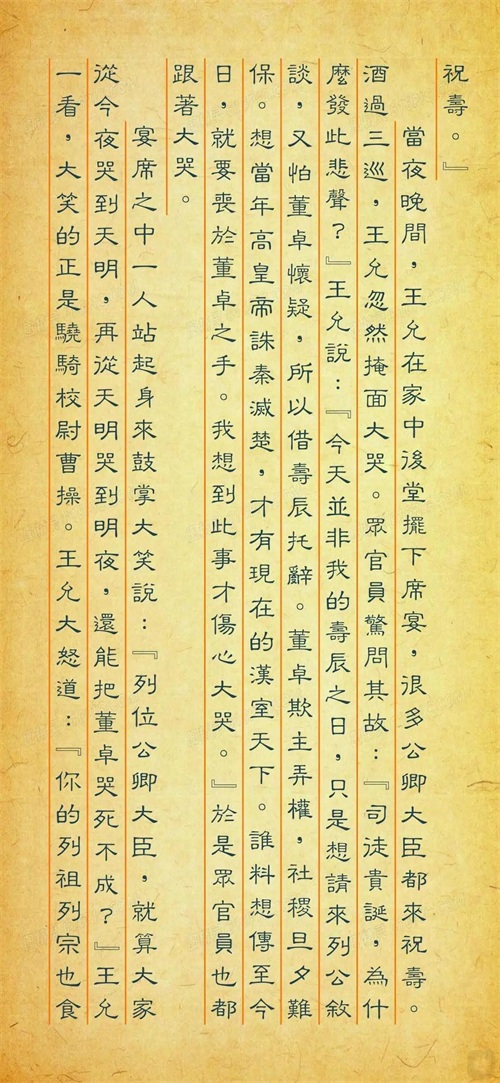 祝壽。』
當夜晚間，王允在家中後堂擺下席宴，很多公卿大臣都來祝壽。
酒過三巡，王允忽然掩面大哭。眾官員驚問其故：『司徒貴誕，為什
麼發此悲聲？』王允說：『今天並非我的壽辰之日，只是想請來列公敘
談，又怕董卓懷疑，所以借壽辰托辭。董卓欺主弄權，社稷旦夕難
保。想當年高皇帝誅秦滅楚，才有現在的漢室天下。誰料想傳至今
日，就要喪於董卓之手。我想到此事才傷心大哭。』於是眾官員也都
跟著大哭。
宴席之中一人站起身來鼓掌大笑說：『列位公卿大臣，就算大家
從今夜哭到天明，再從天明哭到明夜，還能把董卓哭死不成？』王允
一看，大笑的正是驍騎校尉曹操。王允大怒道：『你的列祖列宗也食